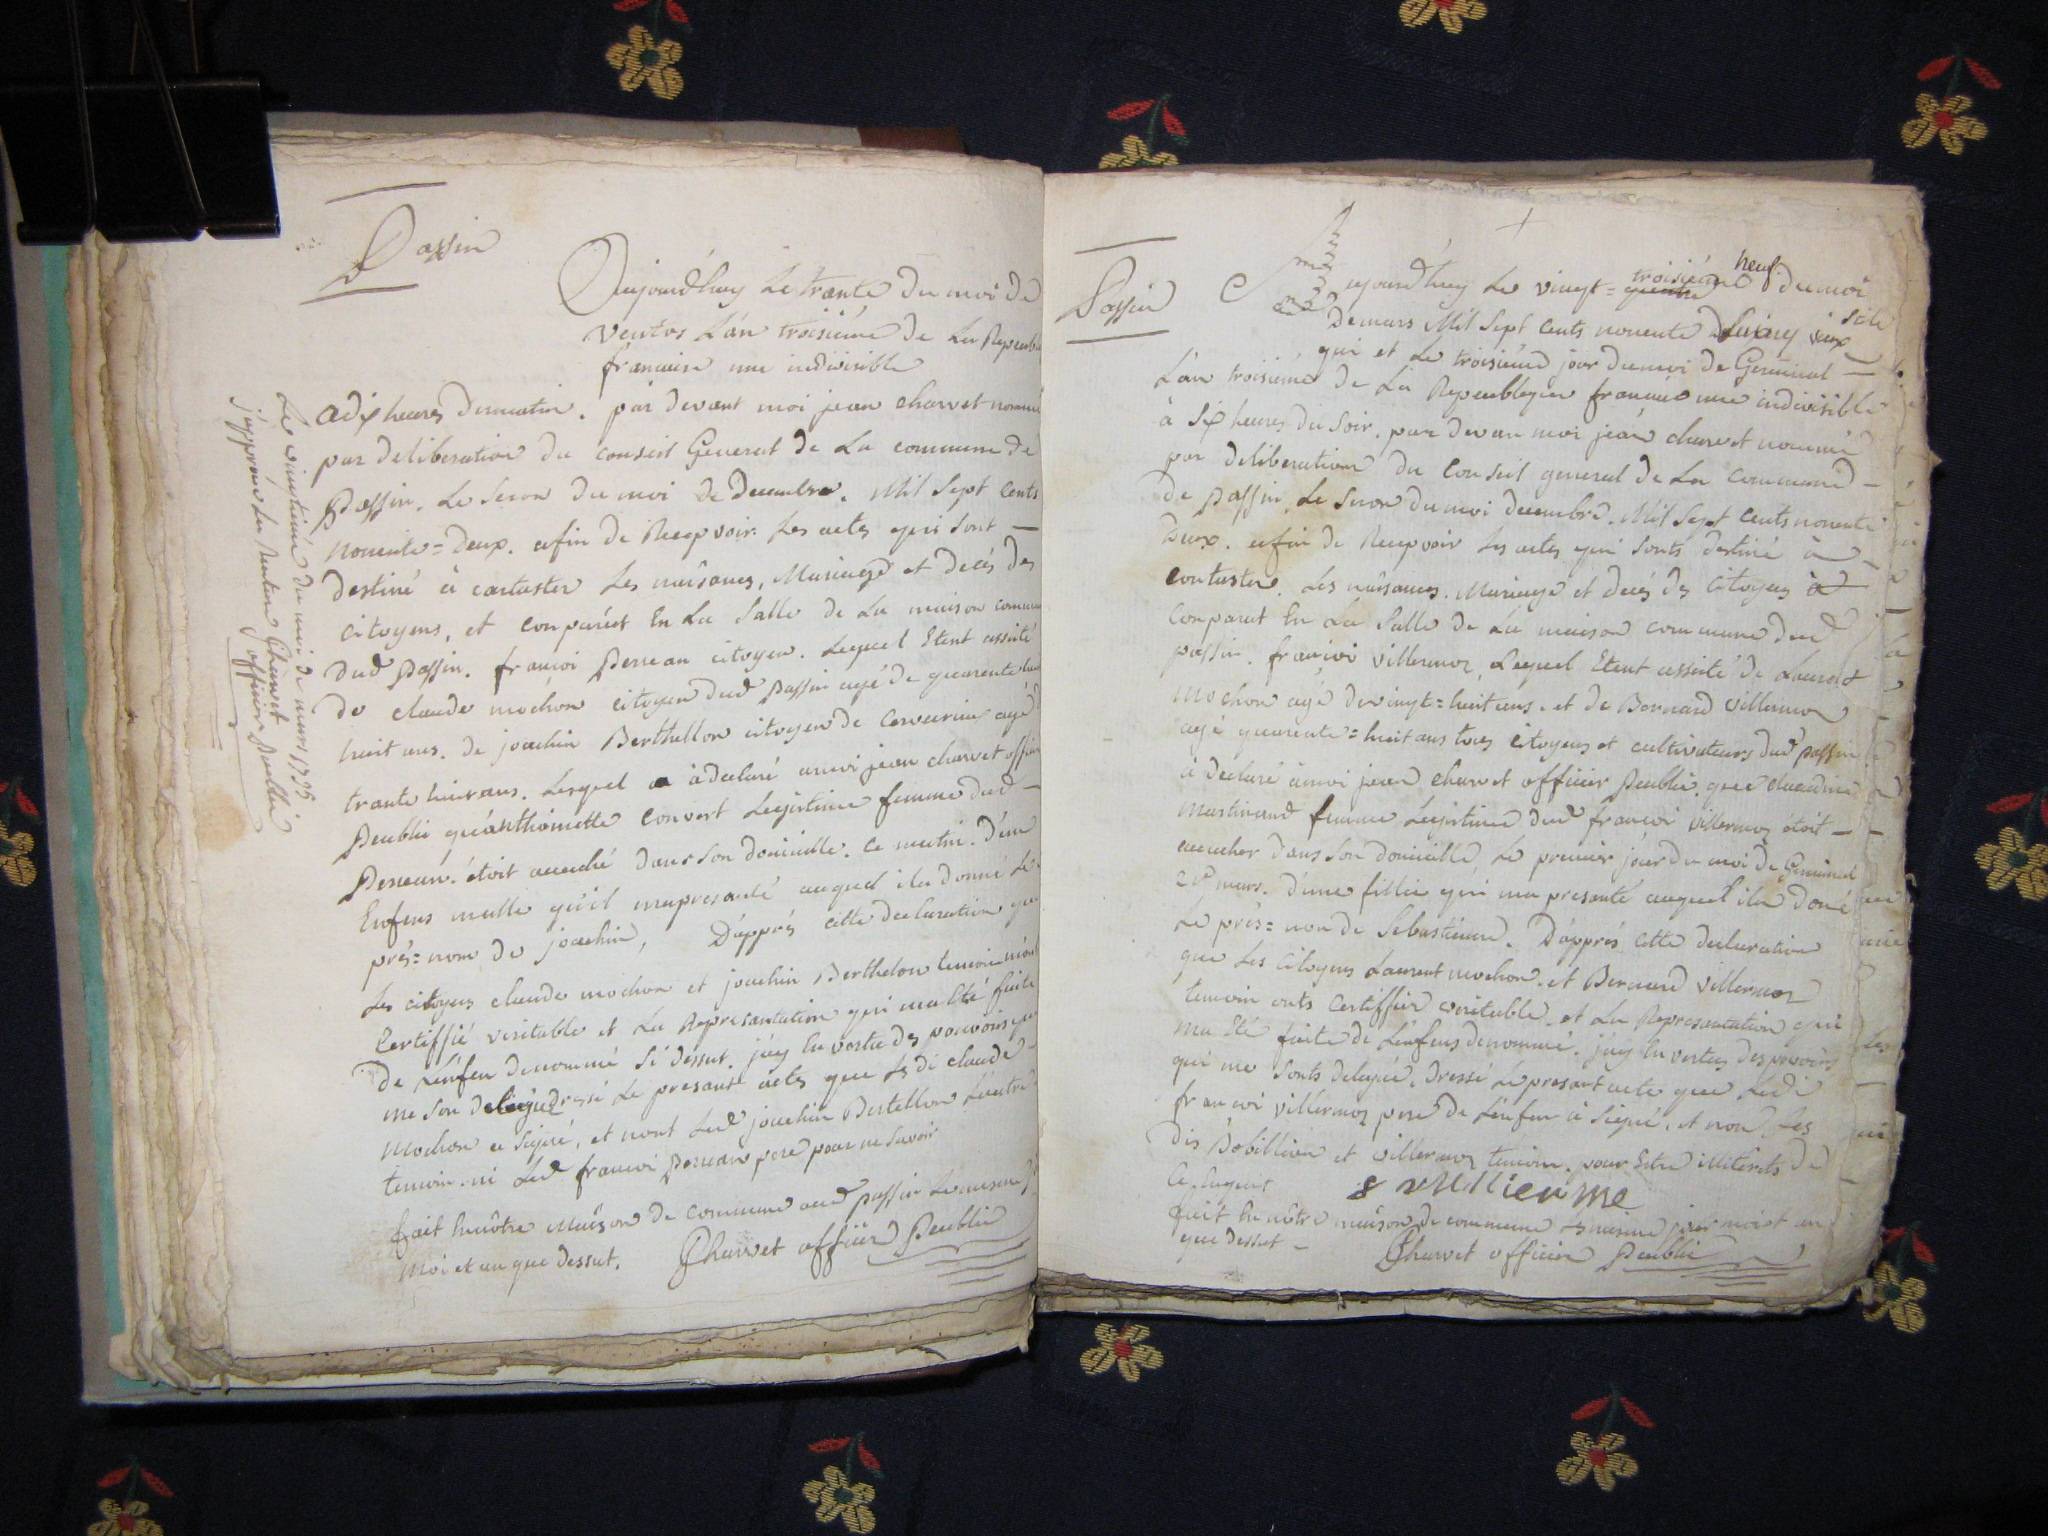 Passin
Aujourd'huy Le trante du moi de
ventos L'an troisiéme de La Republi
francaise une indivisible
a dix heures dumatin. par devant moi jean charvet nommé
par deliberation du conseil General de La commune de
Passin. Le seron du moi de decembre. Mil Sept Cents
nonente=deux. afin de Recepvoir Les actes qui sont —
destiné à contaster Les naîsances, Mariage et décés des
Citoyens, et conparéut En La Salle de La maison commune
dud Passin. francoi Perrean citoyen. Lequel Etent assisté
de claude mochon citoyen dud passin agé de quarente
huit ans. de joachin Berthellon citoyen de agé
trante huit ans. Lesquel a àdeclaré amoi jean charvet officier
Peublic qu'anthoinette Convert Legistime femme dud —
Perrean. étoit acouché dans son domicille. ce matin. D'eun
Enfens malle qu'il mapresanté auquel ila donné Le
prés=nom de joachin, D'apprés cette declaration que
Les citoyens claude mochon et joachin Berthelon temoin mon
Certiffié veritable et La Representation qui ma Eté faite
de L'énfen denommé Si dessut. j'ay En vertu des pouvoirs que
me son delégué dressé Le presant actes que Le di claude
Mochon a Signé, et nont Led joachin Bertellon L'autre
temoin. ni Led francoi Perrean pere pour ne Savoir
fait Ennôtre Maîson de commune aud passin Le mesme j
moi et an que dessut. Charvet officier Peublic
Le vintiémé du moi de mars 1795
j'approuve Charvet
officier Peublic
Passin
Aujourd'huy Le vingt= troisiéme neuf du moi
de mars Mil Sept Cents nonente Cainq vieux stile
qui et Le troisiéme jour du moi de Germinal —
L'an troisiéme de La Republique francaise une indivisible
à Six heures du Soir. par devan moi jéan charvet nommé
par deliberation du Conseil general de La Commune —
de passin. Le Seron du moi decembre. Mil Sept Cents nonente
Deux. afin de Recepvoir Les actes qui Sonts destiné à
contaster. Les naîsances. Mariage et decés des Citoyens à
Conparut En La Salle de La maison commune dud
passin. francoi villermoz, Lequel Etent assisté de Laurent
Mochon agé de vingt=huit ans. et de Bernard villermoz
agé quarente=huit ans tous Citoyens et cultivateurs dud passin.
à declaré àmoi jean charvet officier Peublic. que claudine
Martinand femme Legistime dud francoi villermoz étoit —
acoucher dans Son domicille, Le premier jour du moi de Germinal
21e mars. D'une fillie qui ma presanté auquel ila doné
Le prés=non de Sebastienne. D'apprés cette declaration
que Les citoyens Laurent mochon. et Bernard villermoz
temoin onts Certiffier veritable. et La Representation qui
ma Eté faite de L'énfens denommé. j'ay En vertus des pouvoirs
qui me Sonts delegué. Dressé Le presant acte que Ledi
francoi villermoz pere de L'énfen à Signé. et non Les
dis Bobillion et villermoz temoin. pour Estre illiterés de
Ce
fait En nôtre maîson de commune Le mesme jour moi et an
que dessut — Charvet officier Peublic